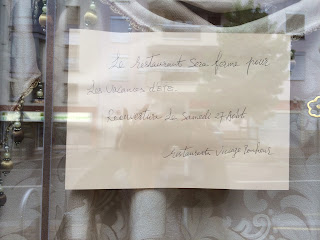 Le restaurant sera fermé pour
les vacances d'été.
Réouverture le samedi août
restaurant Village Bonheur